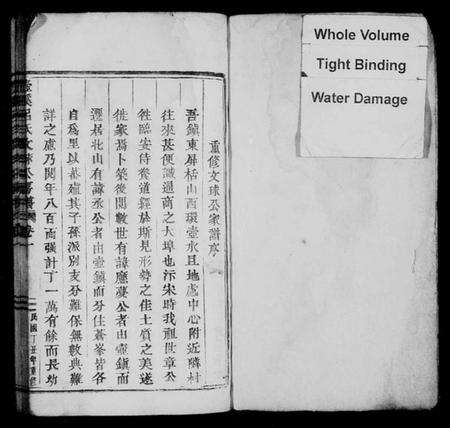 重修文球公家譜序
吾鎮東屏栝山西環壺水且地處中心附近隣村
往來甚便誠通商之大埠也汴宋時我祖世章公
性臨安侍養道經於斯見形勢之佳土質之美遂
徙家焉卜築後閱數世有諱應夔公者由壺鎮而
遷居北山有諱丞公者由壺鎮而分住蒼峯皆各
自為里以蕃衍其子孫派別支分難保無數典難
詳之慮乃閱年八百而強計丁一萬有餘而長幼
民國丁丑年重修
Whole Volume
Tight Binding
Water Damage